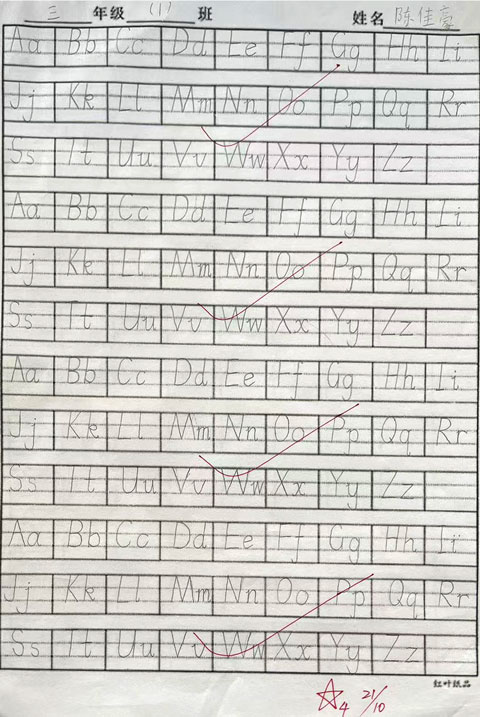 三 年级 (1) 班 姓名 陈佳豪
Aa Bb Cc Dd Ee Ff Gg Hh Ii
Jj Kk Ll Mm Nn Oo Pp Qq Rr
Ss Tt Uu Vv Ww Xx Yy Zz
Aa Bb Cc Dd Ee Ff Gg Hh Ii
Jj Kk Ll Mm Nn Oo Pp Qq Rr
Ss Tt Uu Vv Ww Xx Yy Zz
Aa Bb Cc Dd Ee Ff Gg Hh Ii
Jj Kk Ll Mm Nn Oo Pp Qq Rr
Ss Tt Uu Vv Ww Xx Yy Zz
Aa Bb Cc Dd Ee Ff Gg Hh Ii
Jj Kk Ll Mm Nn Oo Pp Qq Rr
Ss Tt Uu Vv Ww Xx Yy Zz
红叶纸品
☆4 21/10